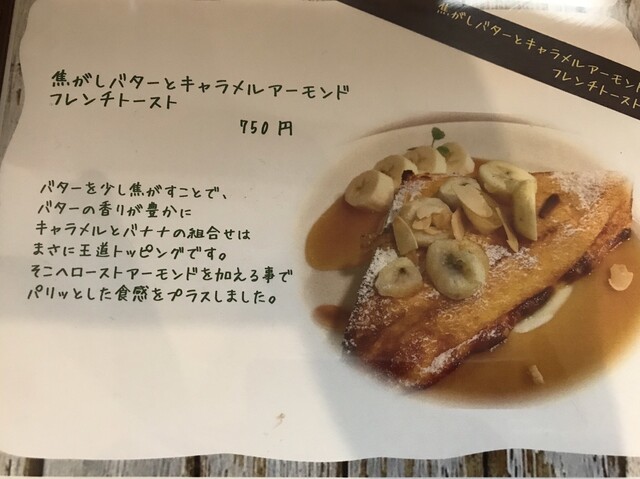 焦がしバターとキャラメルアーモンド
フレンチトースト
焦がしバターとキャラメルアーモンド
フレンチトースト
750 円
バターを少し焦がすことで、
バターの香りが豊かに
キャラメルとバナナの組合せは
まさに王道トッピングです。
そこへローストアーモンドを加える事で
パリッとした食感をプラスしました。